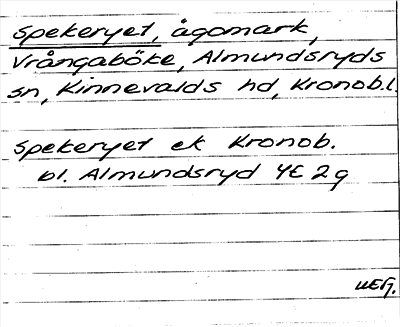 Spekeryet, ägomark,
Vrångaböke, Almundsryds
sn, Kinnevalds hd, Kronob.l.
Spekeryet ek Kronob.
bl. Almundsryd 4E 2g